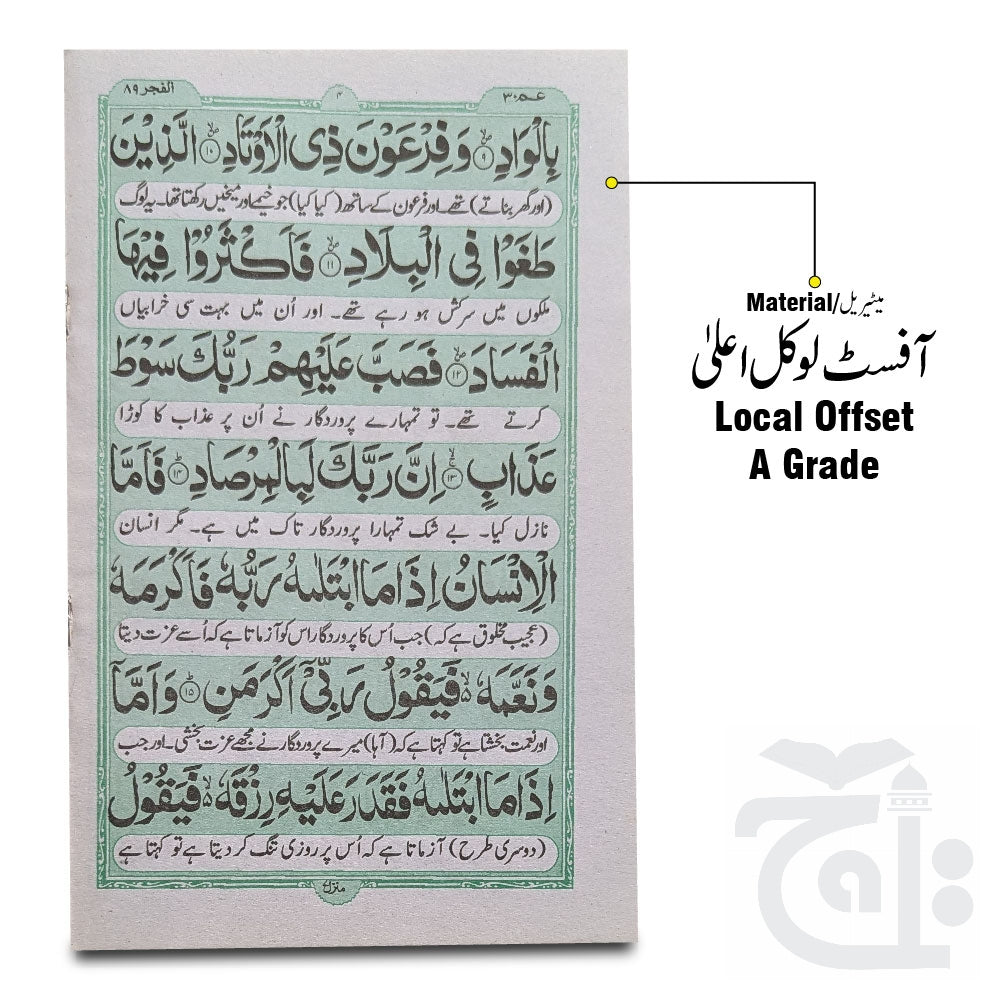 عـم ۳۰
۴
الفجر ۸۹
بِالْوَادِ ۙ۝۹ وَ فِرْعَوْنَ ذِی الْاَوْتَادِ ۙ۝۱۰ الَّذِیْنَ
(اور گھر بناتے) تھے۔ اور فرعون کے ساتھ (کیا کیا) جو خیمے اور میخیں رکھتا تھا۔ یہ لوگ
طَغَوْا فِی الْبِلَادِ ۙ۝۱۱ فَاَكْثَرُوْا فِیْهَا
ملکوں میں سرکش ہو رہے تھے۔ اور اُن میں بہت سی خرابیاں
الْفَسَادَ ۙ۝۱۲ فَصَبَّ عَلَیْهِمْ رَبُّكَ سَوْطَ
کرتے تھے۔ تو تمہارے پروردگار نے اُن پر عذاب کا کوڑا
عَذَابٍ ۚ۝۱۳ اِنَّ رَبَّكَ لَبِالْمِرْصَادِ ؕ۝۱۴ فَاَمَّا
نازل کیا۔ بے شک تمہارا پروردگار تاک میں ہے۔ مگر انسان
الْاِنْسَانُ اِذَا مَا ابْتَلٰىهُ رَبُّهٗ فَاَكْرَمَهٗ
(عجیب مخلوق ہے کہ) جب اُس کا پروردگار اس کو آزماتا ہے کہ اُسے عزت دیتا
وَ نَعَّمَهٗ ۙ۬ فَیَقُوْلُ رَبِّیْۤ اَكْرَمَنِ ؕ۝۱۵ وَ اَمَّاۤ
اور نعمت بخشتا ہے تو کہتا ہے کہ (آہا) میرے پروردگار نے مجھے عزت بخشی۔ اور جب
اِذَا مَا ابْتَلٰىهُ فَقَدَرَ عَلَیْهِ رِزْقَهٗ ۙ۬ فَیَقُوْلُ
(دوسری طرح) آزماتا ہے کہ اُس پر روزی تنگ کر دیتا ہے تو کہتا ہے
منزل ۷
Material/میٹیریل
آفسٹ لوکل اعلیٰ
Local Offset
A Grade